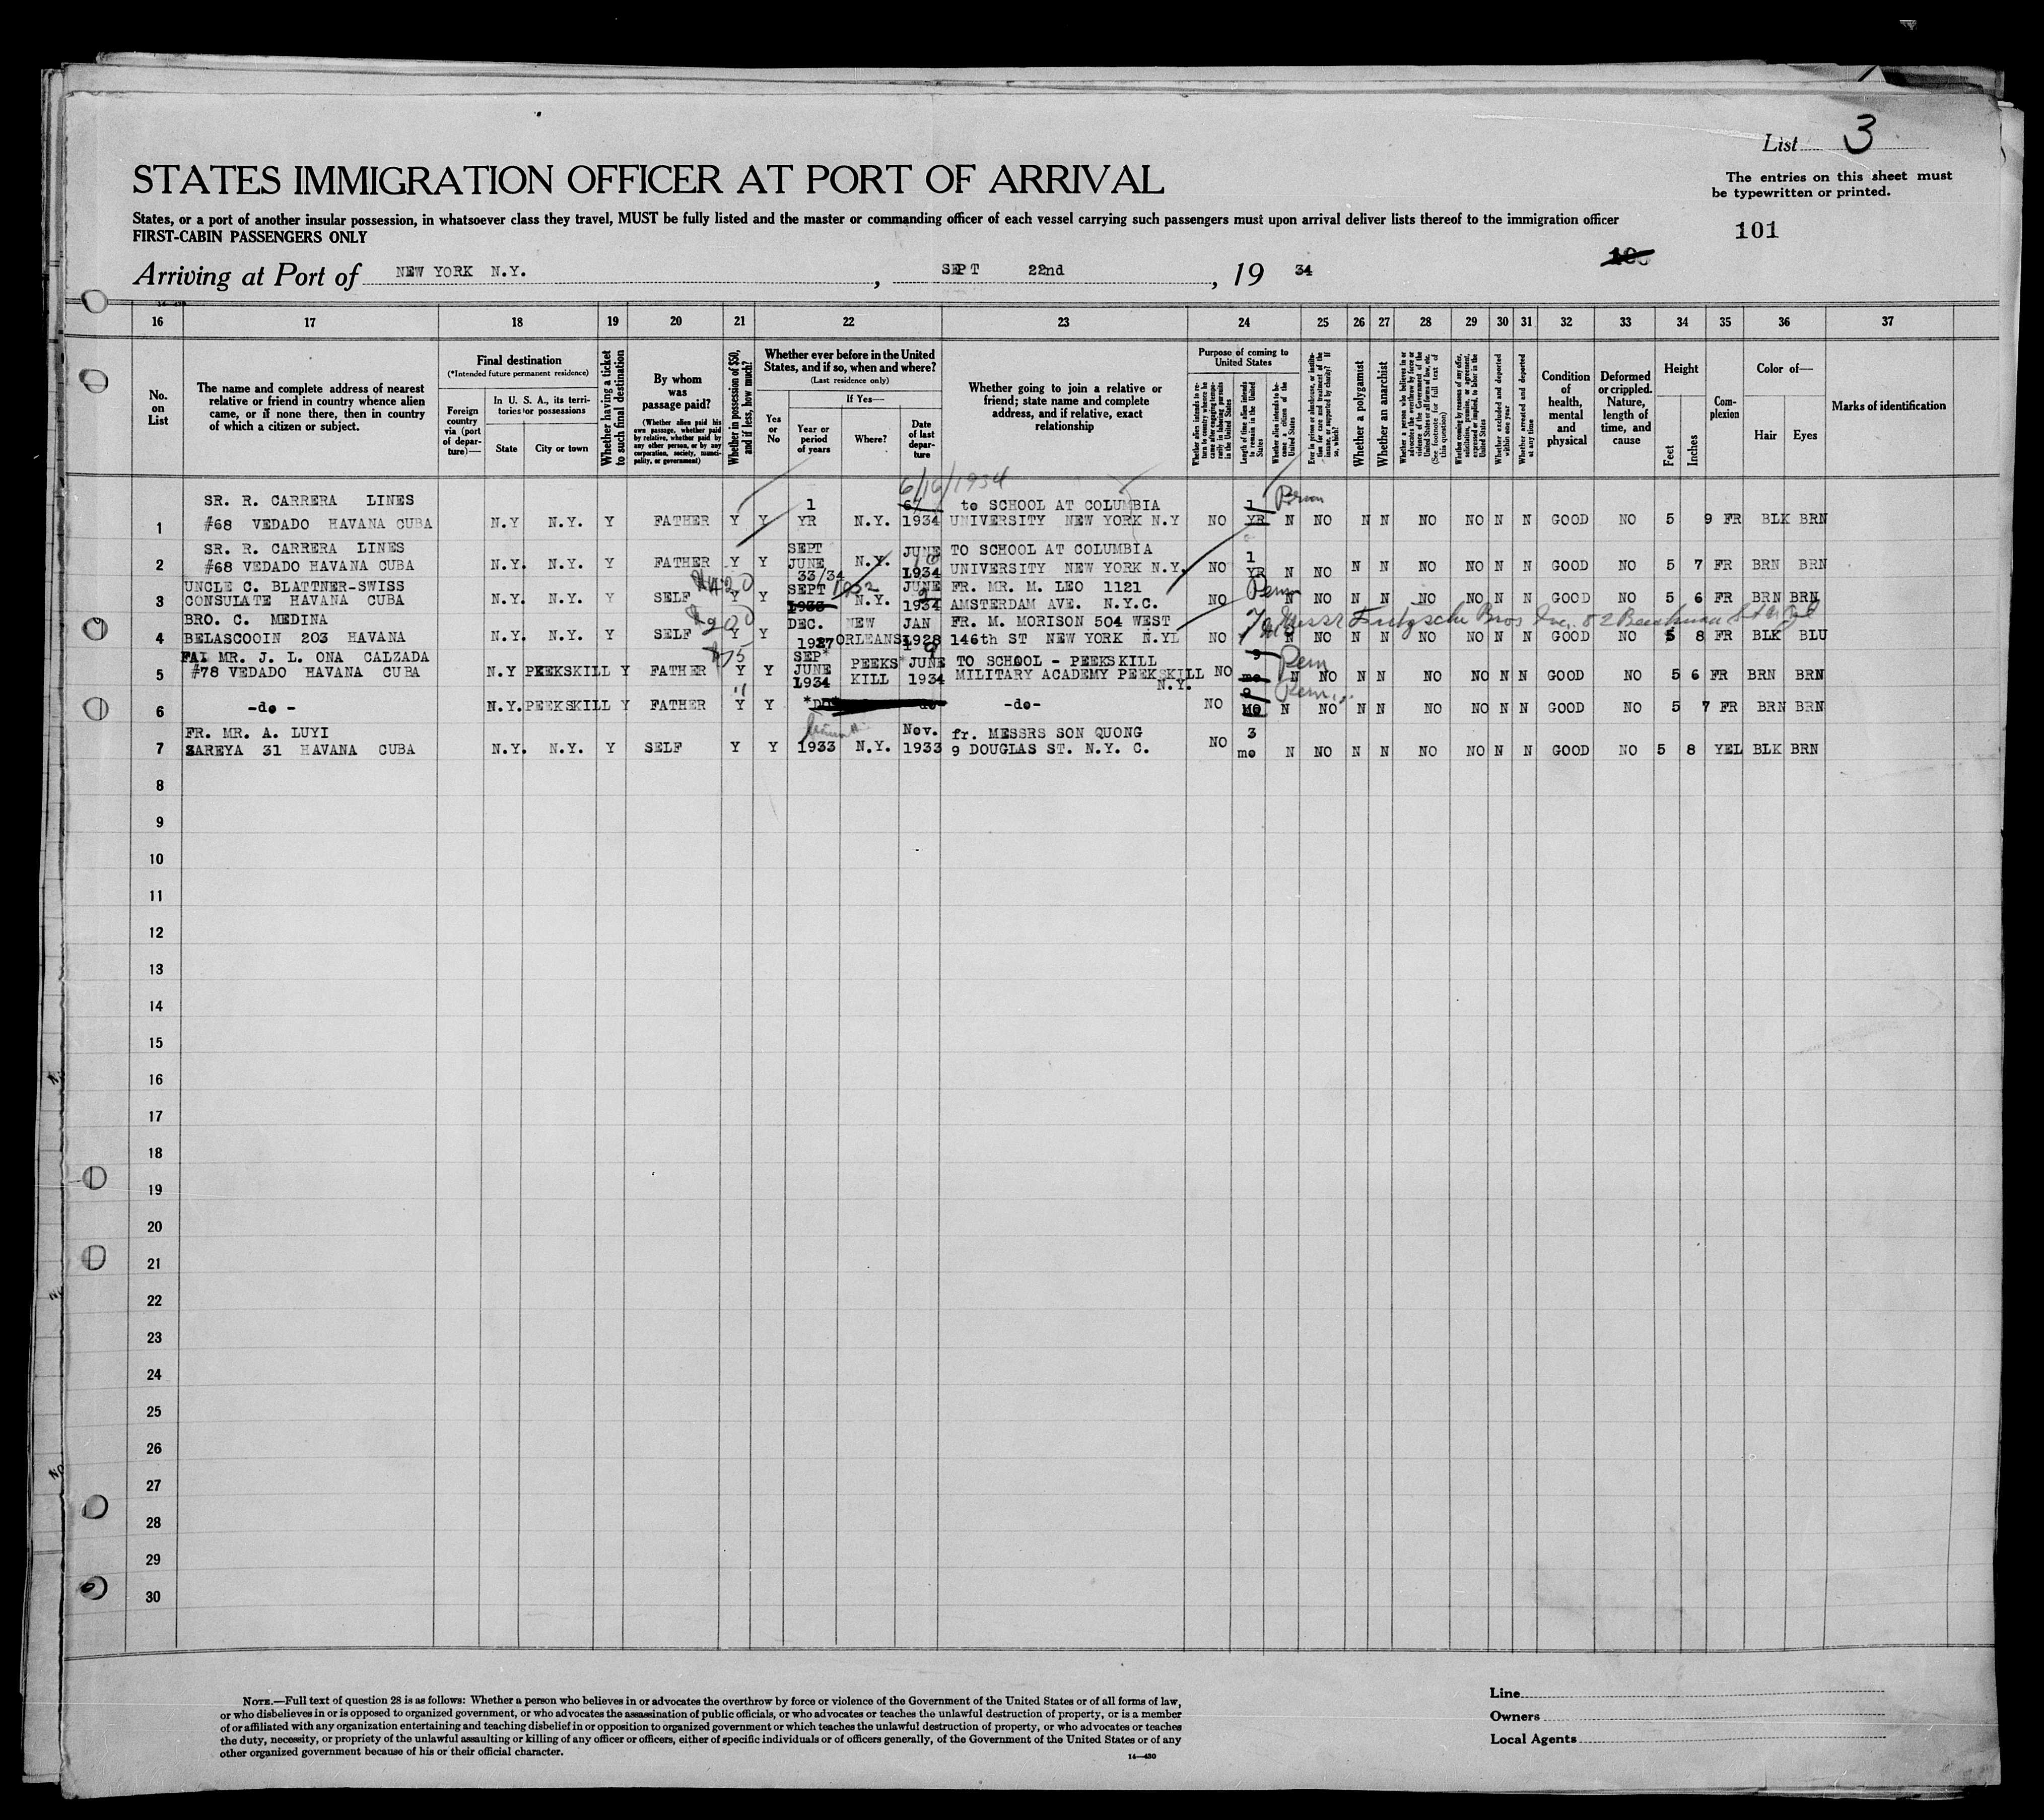 List 3
STATES IMMIGRATION OFFICER AT PORT OF ARRIVAL
The entries on this sheet must
be typewritten or printed.
States, or a port of another insular possession, in whatsoever class they travel, MUST be fully listed and the master or commanding officer of each vessel carrying such passengers must upon arrival deliver lists thereof to the immigration officer
FIRST-CABIN PASSENGERS ONLY
101
Arriving at Port of NEW YORK N.Y. , SEPT 22nd , 19 34
16 17 18 19 20 21 22 23 24 25 26 27 28 29 30 31 32 33 34 35 36 37
No. on List
The name and complete address of nearest
relative or friend in country whence alien
came, or if none there, then in country
of which a citizen or subject.
Final destination
(*Intended future permanent residence)
Foreign country via (port of depar-ture)—
In U. S. A., its terri-
tories or possessions
State
City or town
Whether having a ticket
to such final destination
By whom
was
passage paid?
(Whether alien paid his
own passage, whether paid
by relative, whether paid by
any other person, or by any
corporation, society, munici-
pality, or government)
Whether in possession of $50,
and if less, how much?
Whether ever before in the United
States, and if so, when and where?
(Last residence only)
Yes or No
If Yes—
Year or period of years
Where?
Date of last depar-ture
Whether going to join a relative or
friend; state name and complete
address, and if relative, exact
relationship
Purpose of coming to
United States
Whether alien intends to re-
turn to country whence he
came after engaging tempo-
rarily in laboring pursuits
in the United States
Length of time alien intends
to remain in the United
States
Whether alien intends to be-
come a citizen of the
United States
Ever in prison or almshouse, or institu-
tion for care and treatment of the
insane, or supported by charity? If
so, which?
Whether a polygamist
Whether an anarchist
Whether a person who believes in or
advocates the overthrow by force or
violence of the Government of the
United States or all forms of law, etc.
(See footnote for full text of
this question)
Whether coming by reason of any offer,
solicitation, promise, or agreement,
expressed or implied, to labor in the
United States
Whether excluded and deported
within one year
Whether arrested and deported
at any time
Condition
of
health,
mental
and
physical
Deformed
or crippled.
Nature,
length of
time, and
cause
Height
Feet
Inches
Com-
plexion
Color of—
Hair
Eyes
Marks of identification
6/16/1934
SR. R. CARRERA LINES 1 to SCHOOL AT COLUMBIA 1
1 #68 VEDADO HAVANA CUBA N.Y N.Y. Y FATHER Y Y YR N.Y. 1934 UNIVERSITY NEW YORK N.Y NO YR N NO N N NO NO N N GOOD NO 5 9 FR BLK BRN
SR. R. CARRERA LINES SEPT JUNE TO SCHOOL AT COLUMBIA 1
2 #68 VEDADO HAVANA CUBA N.Y. N.Y. Y FATHER Y Y JUNE 33/34 N.Y. 1934 UNIVERSITY NEW YORK N.Y. NO YR N NO N N NO NO N N GOOD NO 5 7 FR BRN BRN
UNCLE C. BLATTNER-SWISS SEPT 1932 JUNE FR. MR. M. LEO 1121
3 CONSULATE HAVANA CUBA N.Y. N.Y. Y SELF Y Y 1933 N.Y. 1934 AMSTERDAM AVE. N.Y.C. NO N NO N N NO NO N N GOOD NO 5 6 FR BRN BRN
BRO. C. MEDINA $200 DEC. NEW JAN FR. M. MORISON 504 WEST Fritzsche Bros Inc. 82 Beekman St
4 BELASCOOIN 203 HAVANA N.Y. N.Y. Y SELF Y Y 1927 ORLEANS 1928 146th ST NEW YORK N.Y NO N NO N N NO NO N N GOOD NO 5 8 FR BLK BLU
MR. J. L. ONA CALZADA $75 SEP* PEEKS* JUNE TO SCHOOL - PEEKSKILL 9
5 #78 VEDADO HAVANA CUBA N.Y PEEKSKILL Y FATHER Y Y JUNE 1934 KILL 1934 MILITARY ACADEMY PEEKSKILL N.Y. NO mo N NO N N NO NO N N GOOD NO 5 6 FR BRN BRN
6 -do- N.Y. PEEKSKILL Y FATHER Y Y *DO* do -do- NO 9 MO N NO N N NO NO N N GOOD NO 5 7 FR BRN BRN
FR. MR. A. LUYI Nov. fr. MESSRS SON QUONG 3
7 ZAREYA 31 HAVANA CUBA N.Y. N.Y. Y SELF Y Y 1933 N.Y. 1933 9 DOUGLAS ST. N.Y. C. NO mo N NO N N NO NO N N GOOD NO 5 8 YEL BLK BRN
8
9
10
11
12
13
14
15
16
17
18
19
20
21
22
23
24
25
26
27
28
29
30
NOTE.—Full text of question 28 is as follows: Whether a person who believes in or advocates the overthrow by force or violence of the Government of the United States or of all forms of law,
or who disbelieves in or is opposed to organized government, or who advocates the assassination of public officials, or who advocates or teaches the unlawful destruction of property, or is a member
of or affiliated with any organization entertaining and teaching disbelief in or opposition to organized government or which teaches the unlawful destruction of property, or who advocates or teaches
the duty, necessity, or propriety of the unlawful assaulting or killing of any officer or officers, either of specific individuals or of officers generally, of the Government of the United States or of any
other organized government because of his or their official character.
14—430
Line
Owners
Local Agents